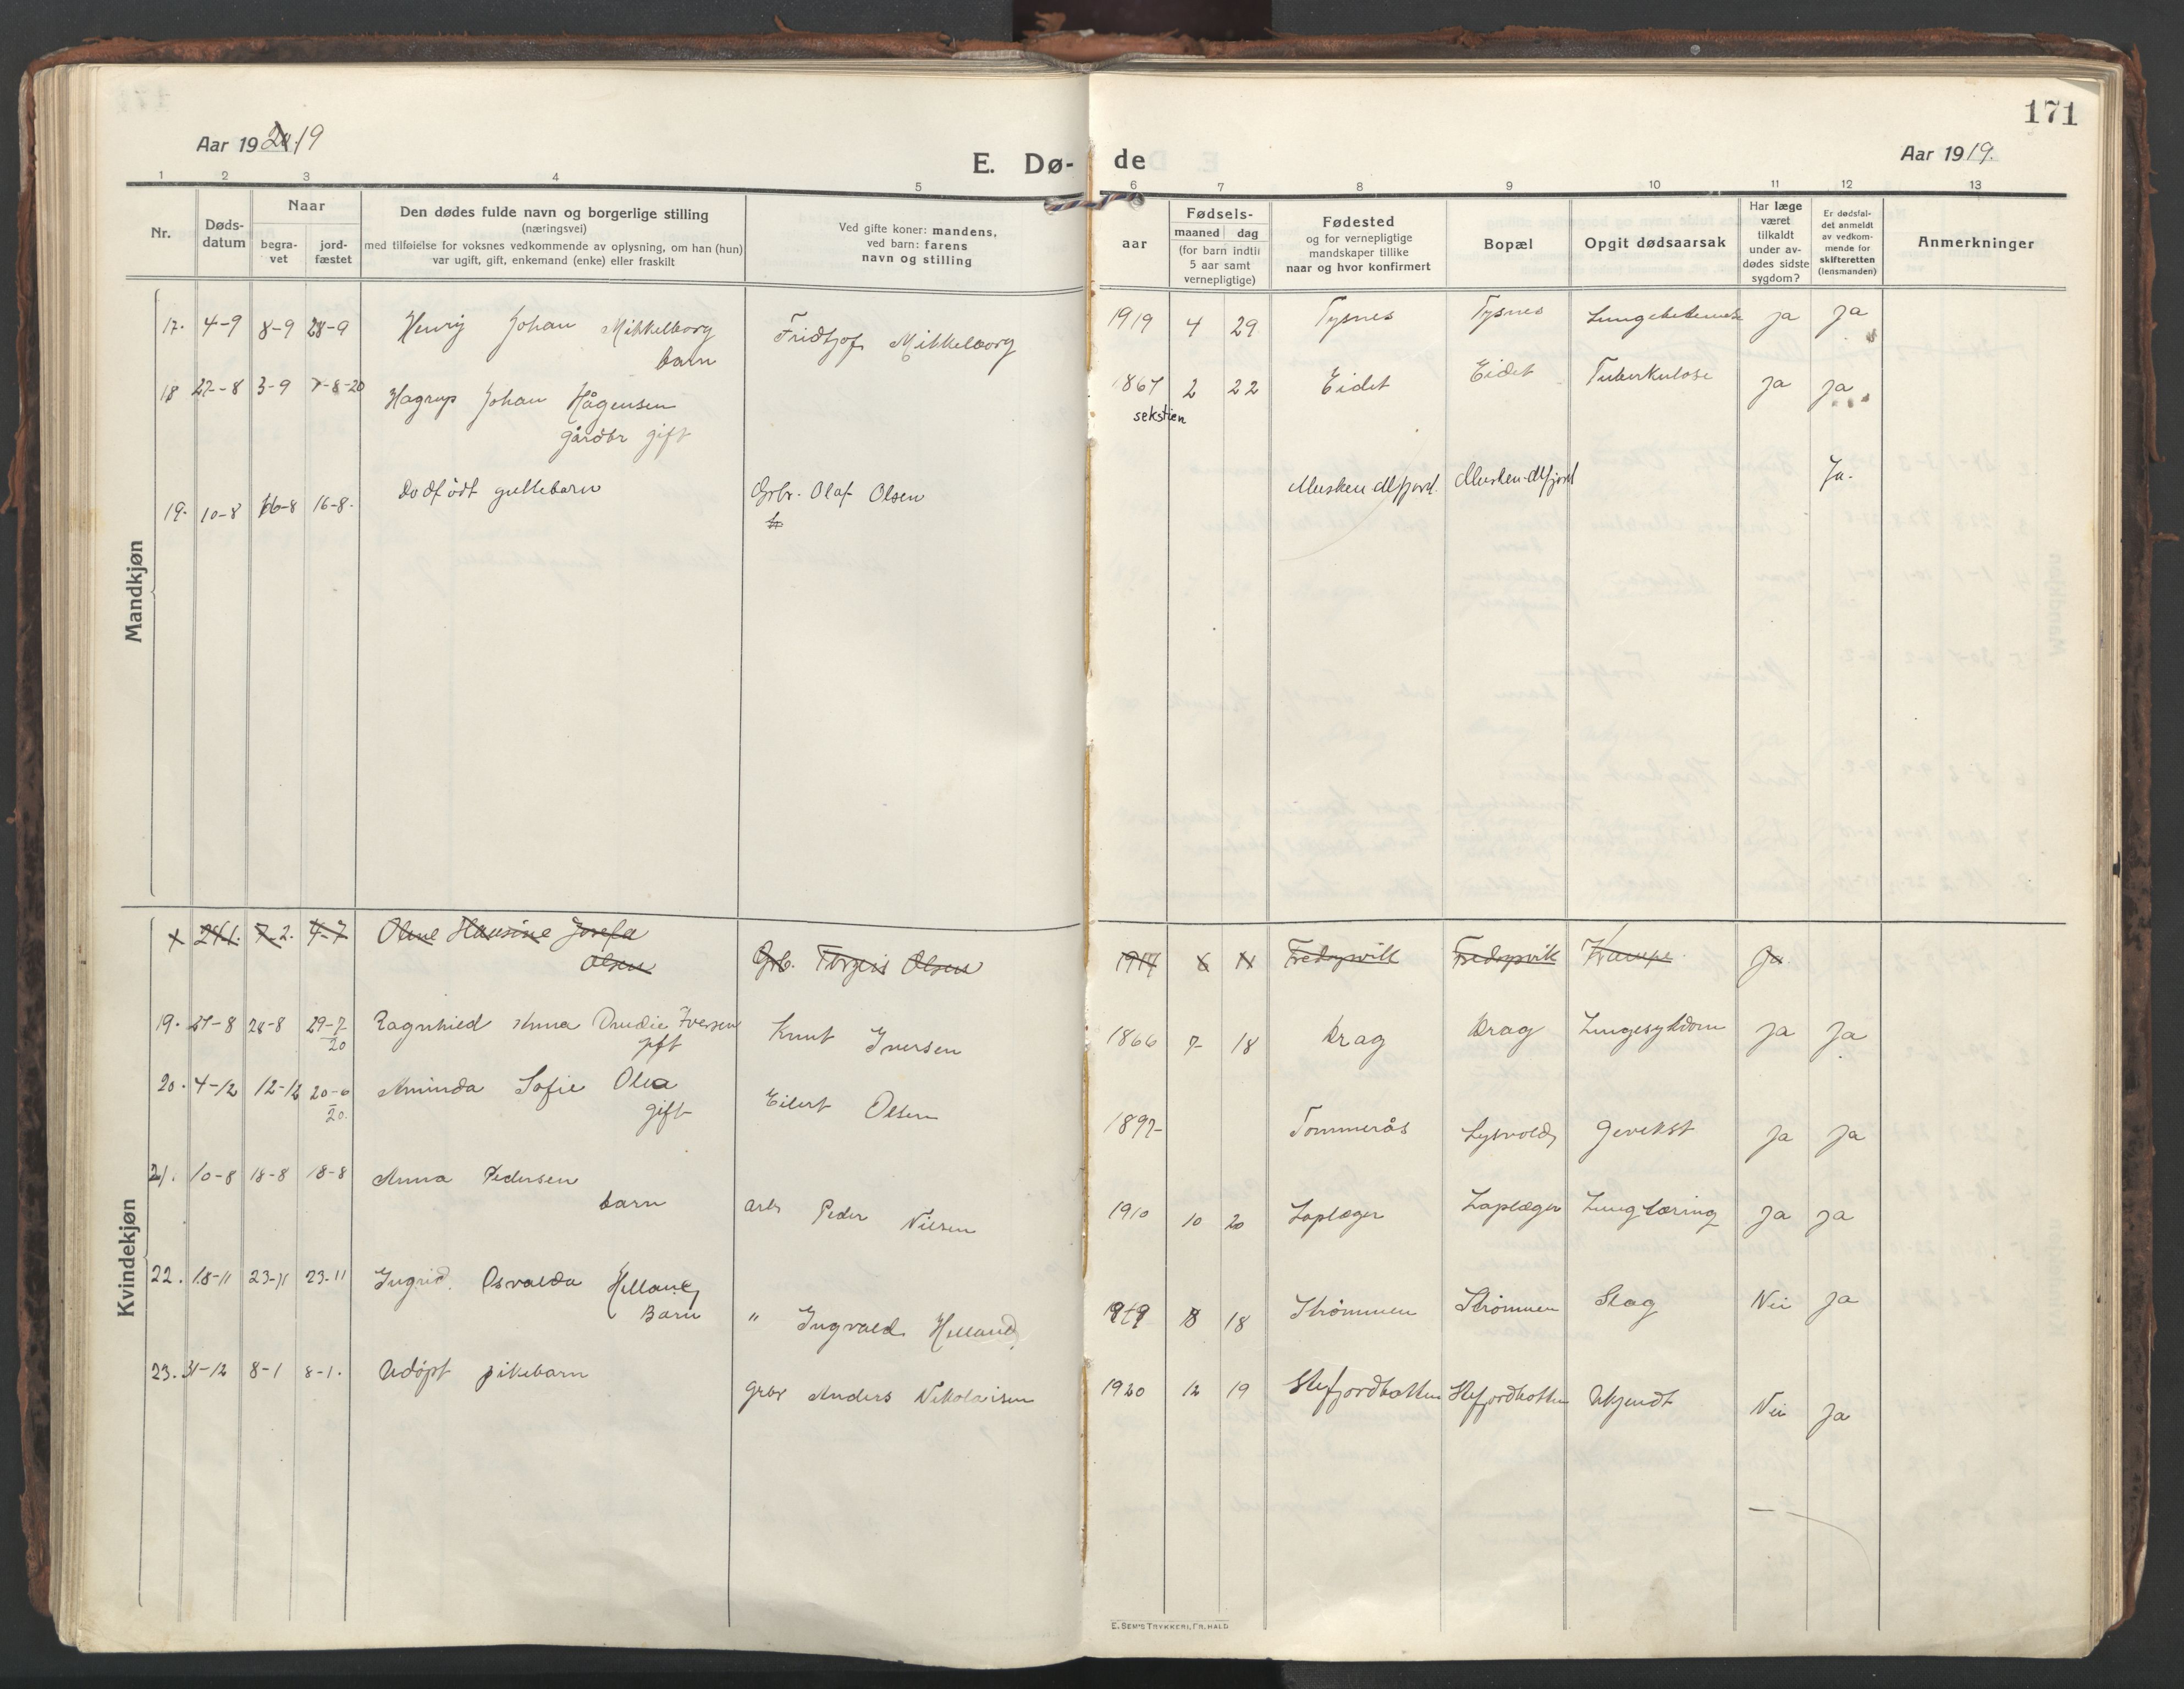 171
Aar 1920/19
E. Dø- de
Aar 1919.
1 2 3 4 5 6 7 8 9 10 11 12 13
Nr.
Døds-
datum
Naar
begra-
vet
jord-
fæstet
Den dødes fulde navn og borgerlige stilling
(næringsvei)
med tilføielse for voksnes vedkommende av oplysning, om han (hun)
var ugift, gift, enkemand (enke) eller fraskilt
Ved gifte koner: mandens,
ved barn: farens
navn og stilling
aar
Fødsels-
maaned dag
(for barn indtil
5 aar samt
vernepligtige)
Fødested
og for vernepligtige
mandskaper tillike
naar og hvor konfirmert
Bopæl
Opgit dødsaarsak
Har læge
været
tilkaldt
under av-
dødes sidste
sygdom?
Er dødsfal-
det anmeldt
av vedkom-
mende for
skifteretten
(lensmanden)
Anmerkninger
Mandkjøn
17. 4-9 8-9 28-9 Henrij Johan Mikkelborg Fridtjof Mikkelborg 1919 4 29 Tysnes Tysnes Ja Ja
barn
18 27-8 3-9 7-8-20 Hagrup Johan Hågensen 1867 2 22 Eidet Eidet Tuberkulose Ja Ja
sekstien
gårdbr gift
19. 10-8 16-8 16-8. dødfødt guttebarn Grbr. Olaf Olsen Musken Musken Ja.
Kvindekjøn
24-1. 7-2. 4-7 Oline Hansine Josefa
Olsen Grb. Olsen 1914 6 11 Krampe Ja
19. 27-8 28-8 29-7-20 Ragnhild Anna Iversen Knut Iversen 1866 7 18 Drag Drag Lungesykdom Ja Ja
gift
20. 4-12 12-12 20-6-20. Aminda Sofie Olea Eilert Olsen 1897 Tommerås Lysvold Ja Ja
gift
21. 10-8 18-8 18-8 Anna Pedersen
barn arb Peder Nilsen 1910 10 20 Laplæger Laplæger Ja Ja
22. 18-11 23-11 23-11 Ingrid Osvalda Helland
Barn " Ingvald Helland 1919 8 18 Strömmen Strömmen Slag Nei Ja
23. 31-12 8-1 8-1. Udøpt pikebarn
grbr Anders Nikolaisen 1920 12 19 Stefjordbotten Stefjordbotten Ukjendt Nei Ja
E. SEM'S TRYKKERI, FR. HALD